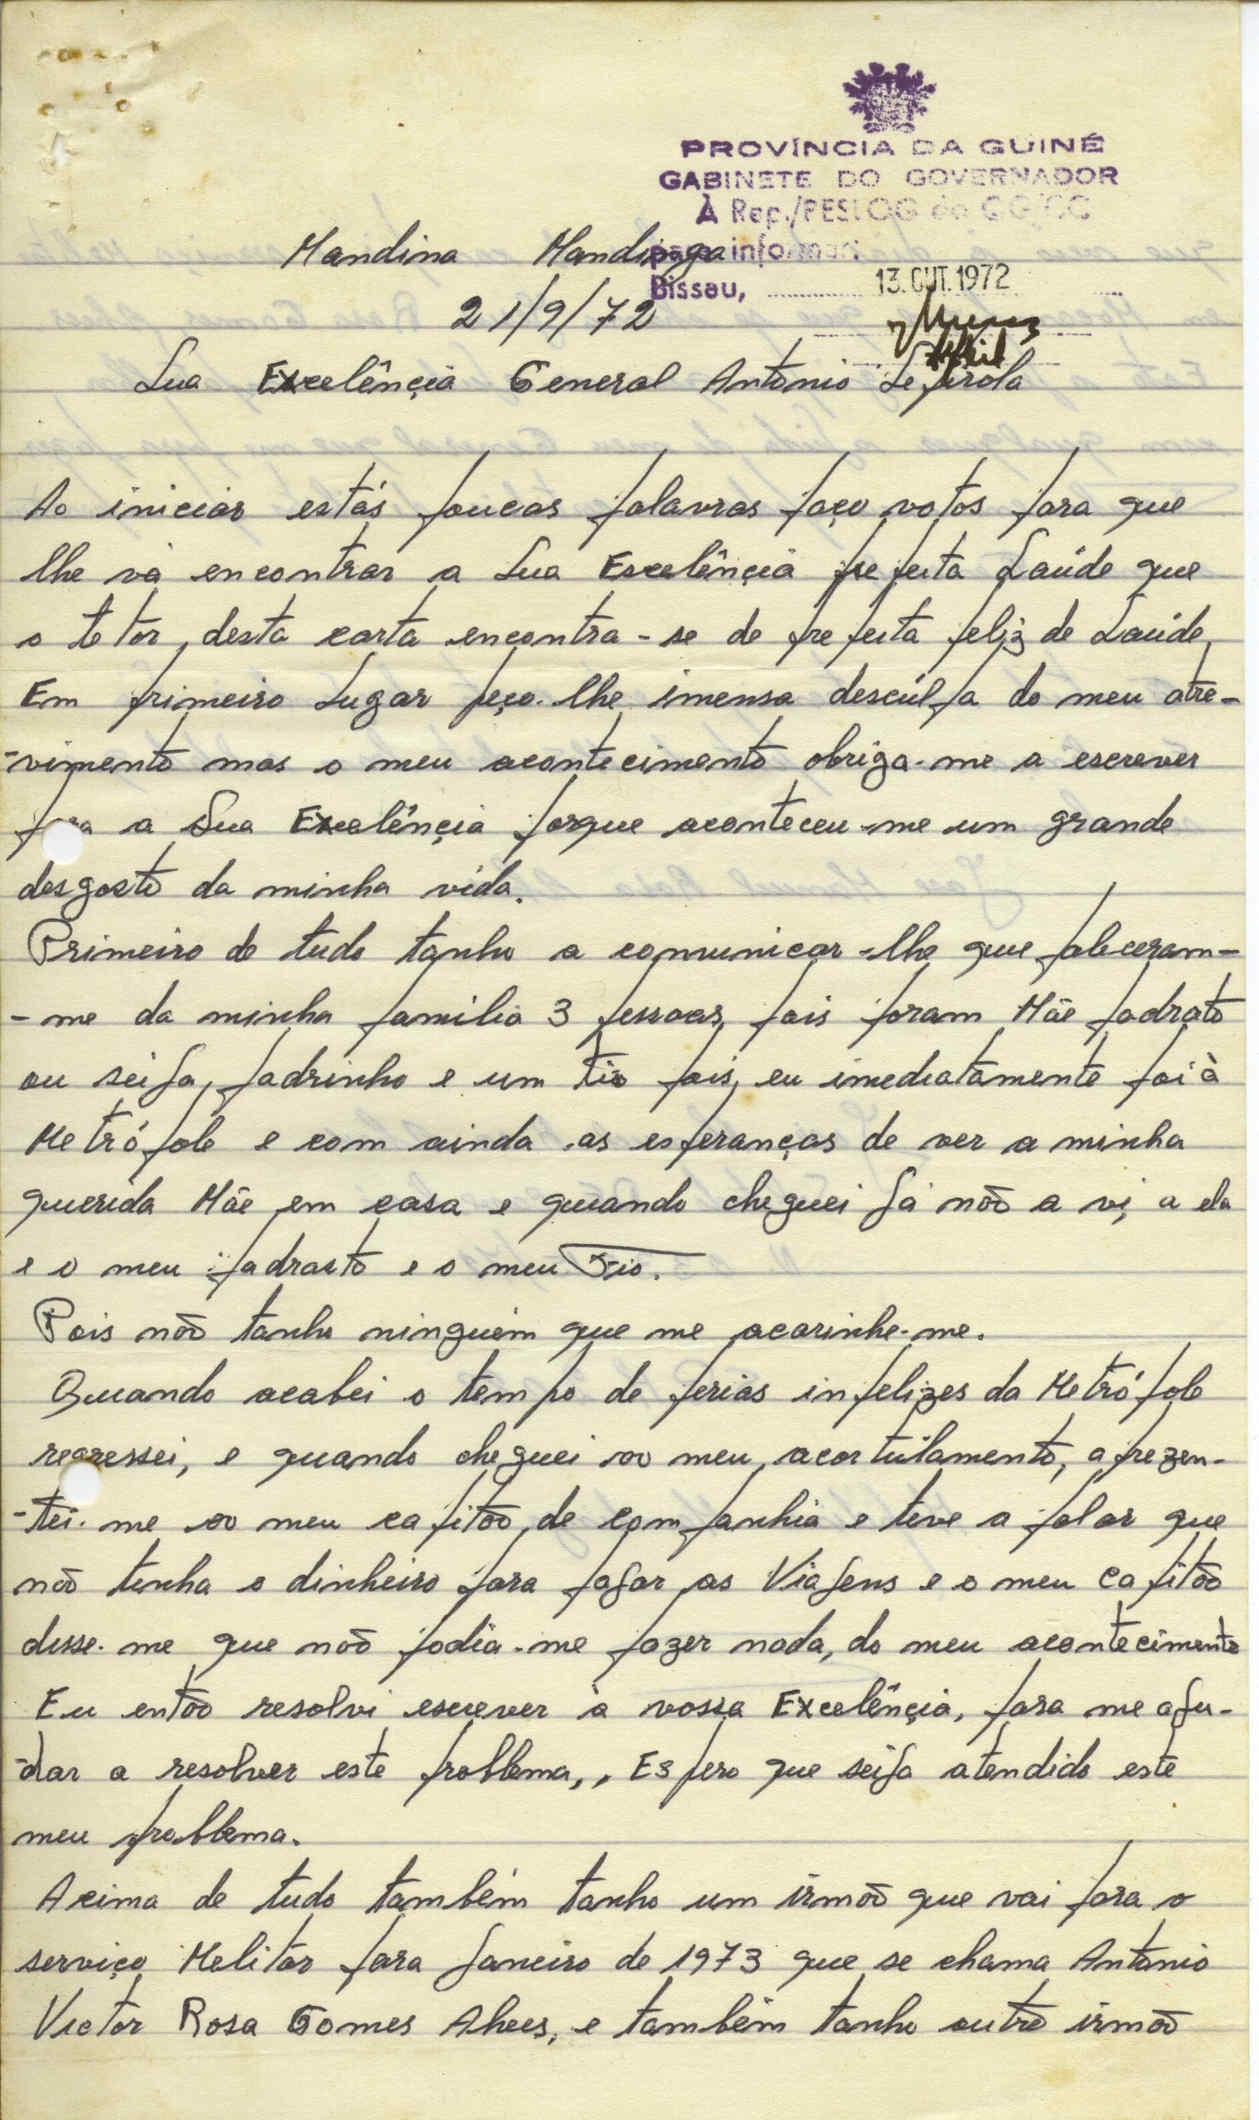 PROVÍNCIA DA GUINÉ
GABINETE DO GOVERNADOR
À Rep./PESLOG do QG/CC
para informar
Bissau, 13. OUT. 1972
Mandina Mandinga
21/9/72
Sua Excelênçia General Antonio Sepirola
Ao iniciar estás poucas palavras faço votos para que
lhe vá encontrar a Sua Excelênçia prefeita Saúde que
o totor, desta carta encontra-se de prefeita feliz de Saúde,
Em primeiro Lugar peço-lhe imensa descúlpa do meu atre-
-vimento mas o meu acontecimento obriga-me a escrever
para a Sua Excelênçia porque aconteceu-me um grande
desgosto da minha vida.
Primeiro de tudo tanho a comunicar-lhe que faleceram-
-me da minha familia 3 pessoas, pois foram Mãe padrato
ou seija, padrinho e um tio pois, eu imediatamente foi à
Metrópole e com ainda as esperanças de ver a minha
querida Mãe em casa e quando cheguei já não a vi, a ela
e o meu padrasto e o meu Tio.
Pois não tanho ninguém que me acarinhe-me.
Quando acabei o tempo de ferias infelizes da Metrópole
regressei, e quando cheguei ao meu acortulamento, aprezen-
-tei-me ao meu capitão, de Companhia e teve a falar que
não tinha o dinheiro para pagar as Viajens e o meu Capitão
disse-me que não podia-me fazer nada, do meu acontecimento
Eu então resolvi escrever à vossa Excelênçia, para me aju-
-dar a resolver este problema,, Espero que seija atendido este
meu problema.
Acima de tudo também tanho um irmão que vai para o
serviço Melitar para Janeiro de 1973 que se chama Antonio
Victor Rosa Gomes Alves, e também tanho outro irmão